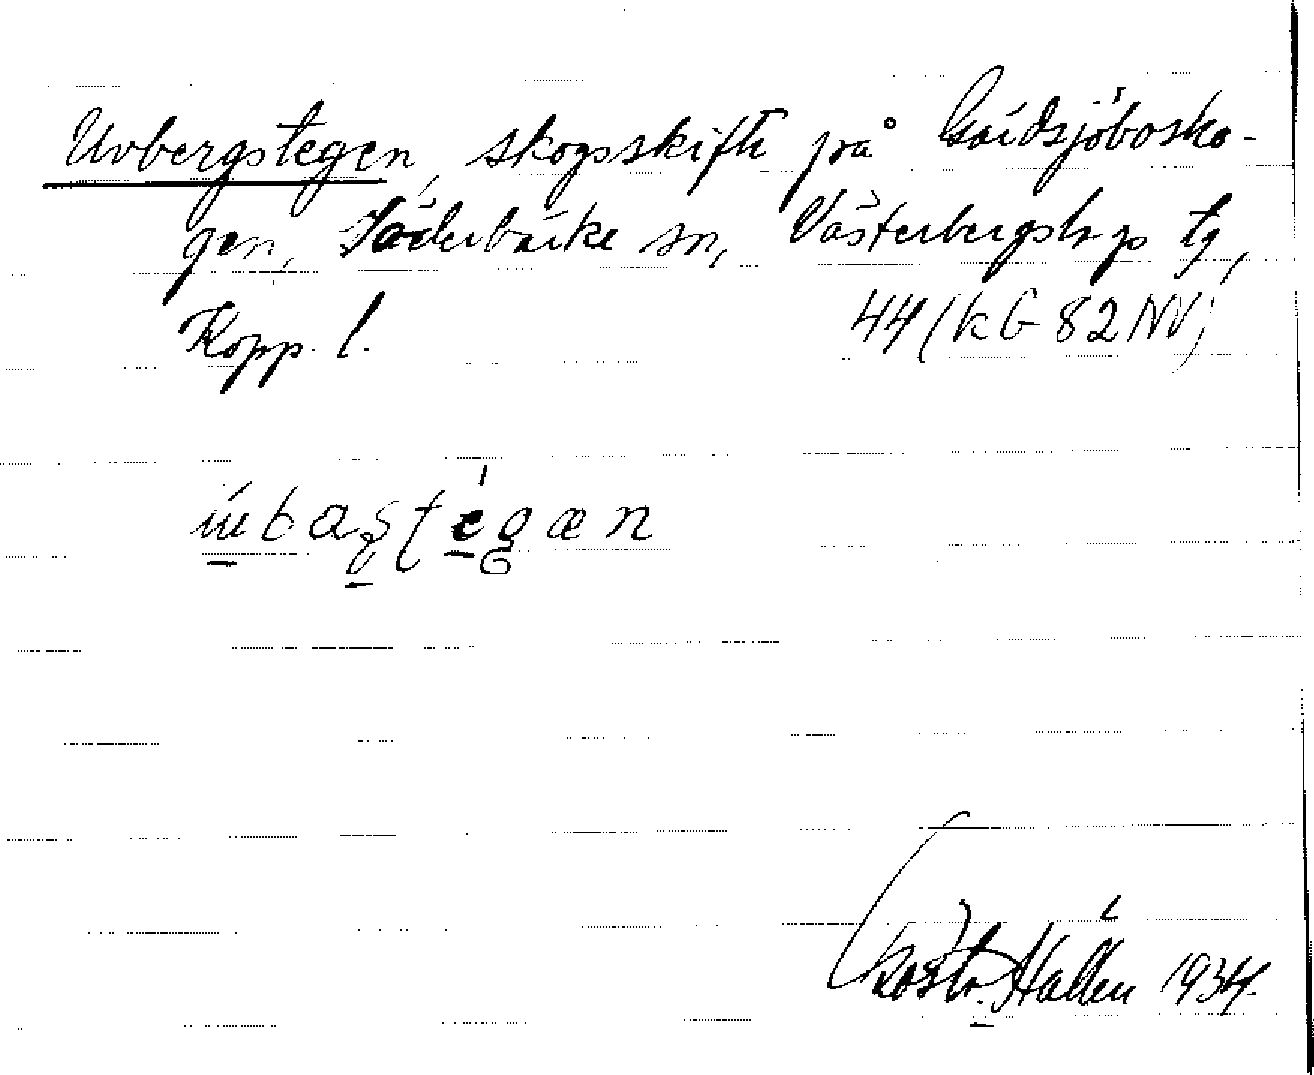 Uvbergstegen, skogsskifte på Gaidsjöbosko-
gen, Söderbärke sn, Västerbergslags tg,
Kopp. l. 44 (kG 82 NV)
Hallén 1934.